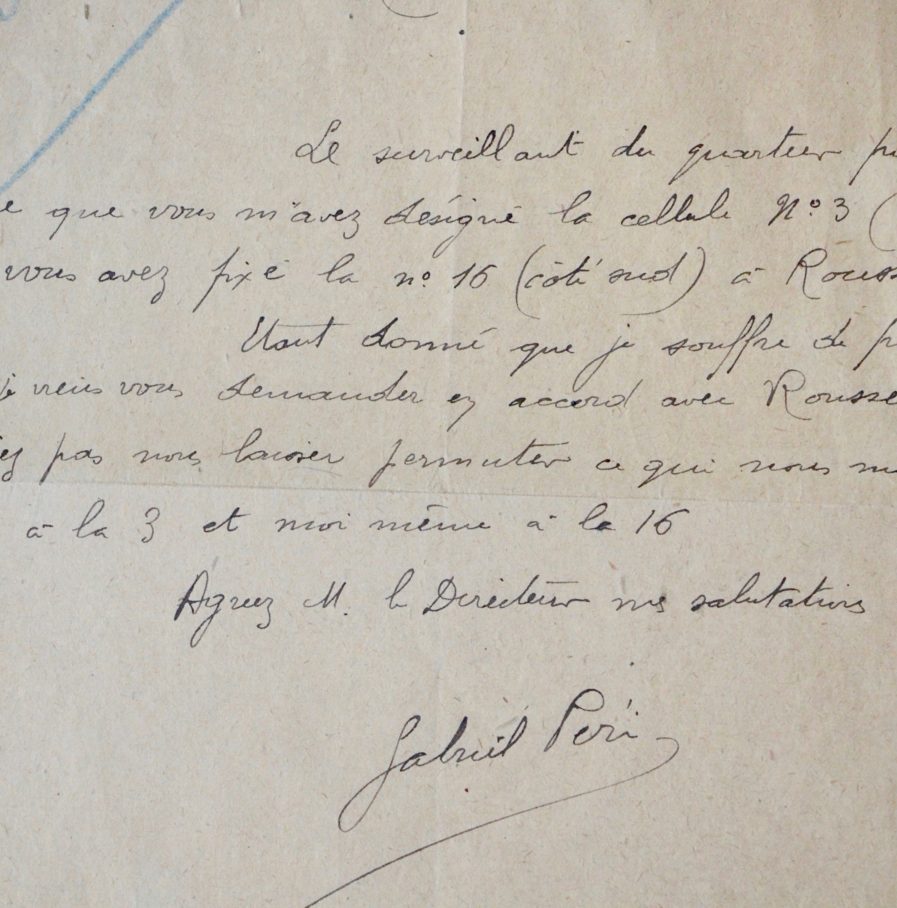 Le surveillant du quartier
que vous m'avez désigné la cellule N° 3 (
vous avez fixé la n° 16 (côté sud) à Rouss
Etant donné que je souffre de p
viens vous demander en accord avec Rousse
ez pas nous laisser permuter ce qui nous m
à la 3 et moi même à la 16
Agréez M. le Directeur mes salutations
Gabriel Péri